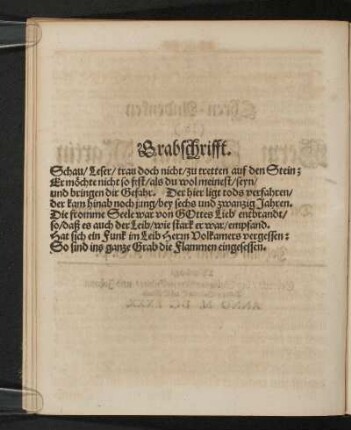 Grabschrifft.
Schau/ Leser/ trau doch nicht/ zu tretten auf den Stein;
Er möchte nicht so fest/ als du wol meinest/ seyn/
und bringen dir Gefahr. Der hier ligt tods verfahren/
der kam hinab noch jung/ bey sechs und zwanzig Jahren.
Die fromme Seele war von GOttes Lieb' entbrandt/
so/ daß es auch der Leib/ wie stark er war/ empfand.
Hat sich ein Funk im Leib Herrn Volkamers vergessen:
So sind ins ganze Grab die Flammen eingesessen.